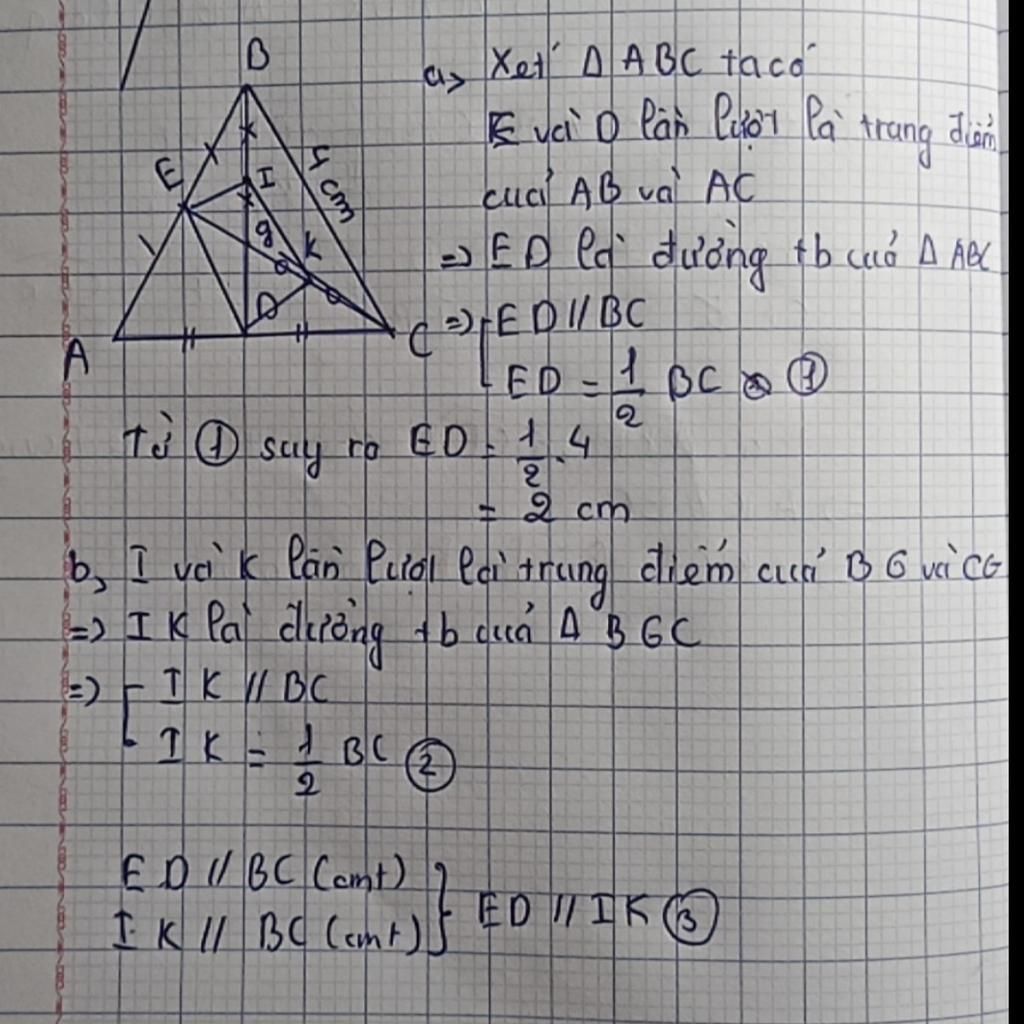 B
E
I
4 cm
G
K
D
A
C
a, Xét Δ ABC ta có
E và D lần lượt là trung điểm
của AB và AC
=> ED là đường tb của Δ ABC
=> ED // BC
ED = 1/2 BC ①
Từ ① suy ra ED = 1/2 . 4
= 2 cm
b, I và K lần lượt là trung điểm của BG và CG
=> IK là đường tb của Δ BGC
=> IK // BC
IK = 1/2 BC ②
ED // BC (cmt)
IK // BC (cmt) } ED // IK ③